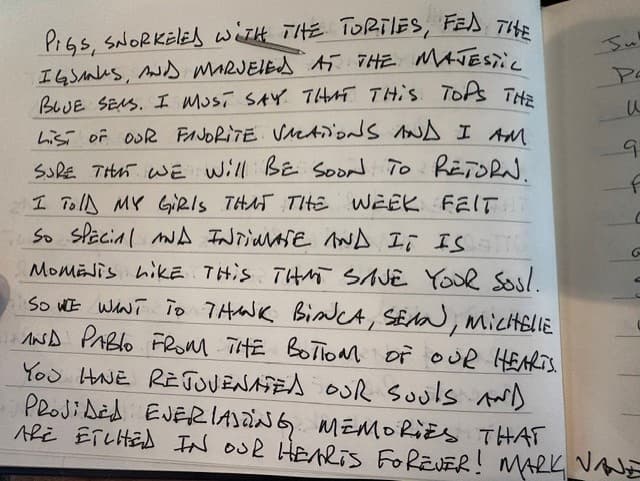 PIGS, SNORKELED WITH THE TURTLES, FED THE
IGUANAS, AND MARVELED AT THE MAJESTIC
BLUE SEAS. I MUST SAY THAT THIS TOPS THE
LIST OF OUR FAVORITE VACATIONS AND I AM
SURE THAT WE WILL BE SOON TO RETURN.
I TOLD MY GIRLS THAT THE WEEK FELT
SO SPECIAL AND INTIMATE AND IT IS
MOMENTS LIKE THIS THAT SAVE YOUR SOUL.
SO WE WANT TO THANK BIANCA, SEAN, MICHELLE
AND PABLO FROM THE BOTTOM OF OUR HEARTS.
YOU HAVE REJUVENATED OUR SOULS AND
PROVIDED EVERLASTING MEMORIES THAT
ARE ETCHED IN OUR HEARTS FOREVER! MARK